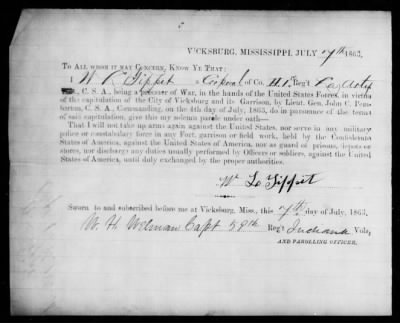 VICKSBURG, MISSISSIPPI, JULY 7th 1863.
TO ALL WHOM IT MAY CONCERN, KNOW YE THAT:
I W. L. Tippet a Corporal of Co. Reg't
C. S. A., being a Prisoner of War, in the hands of the United States Forces, in virtue
of the capitulation of the City of Vicksburg and its Garrison, by Lieut. Gen. John C. Pem-
berton, C. S. A., Commanding, on the 4th day of July, 1863, do in pursuance of the terms
of said capitulation, give this my solemn parole under oath—
That I will not take up arms again against the United States, nor serve in any military
police or constabulary force in any Fort, garrison or field work, held by the Confederate
States of America, against the United States of America, nor as guard of prisons, depots or
stores, nor discharge any duties usually performed by Officers or soldiers, against the United
States of America, until duly exchanged by the proper authorities.
Wm L. Tippet
Sworn to and subscribed before me at Vicksburg, Miss., this 7th day of July, 1863.
W. H. Welman Capt 59th Reg't Indiana Vols,
AND PAROLLING OFFICER.